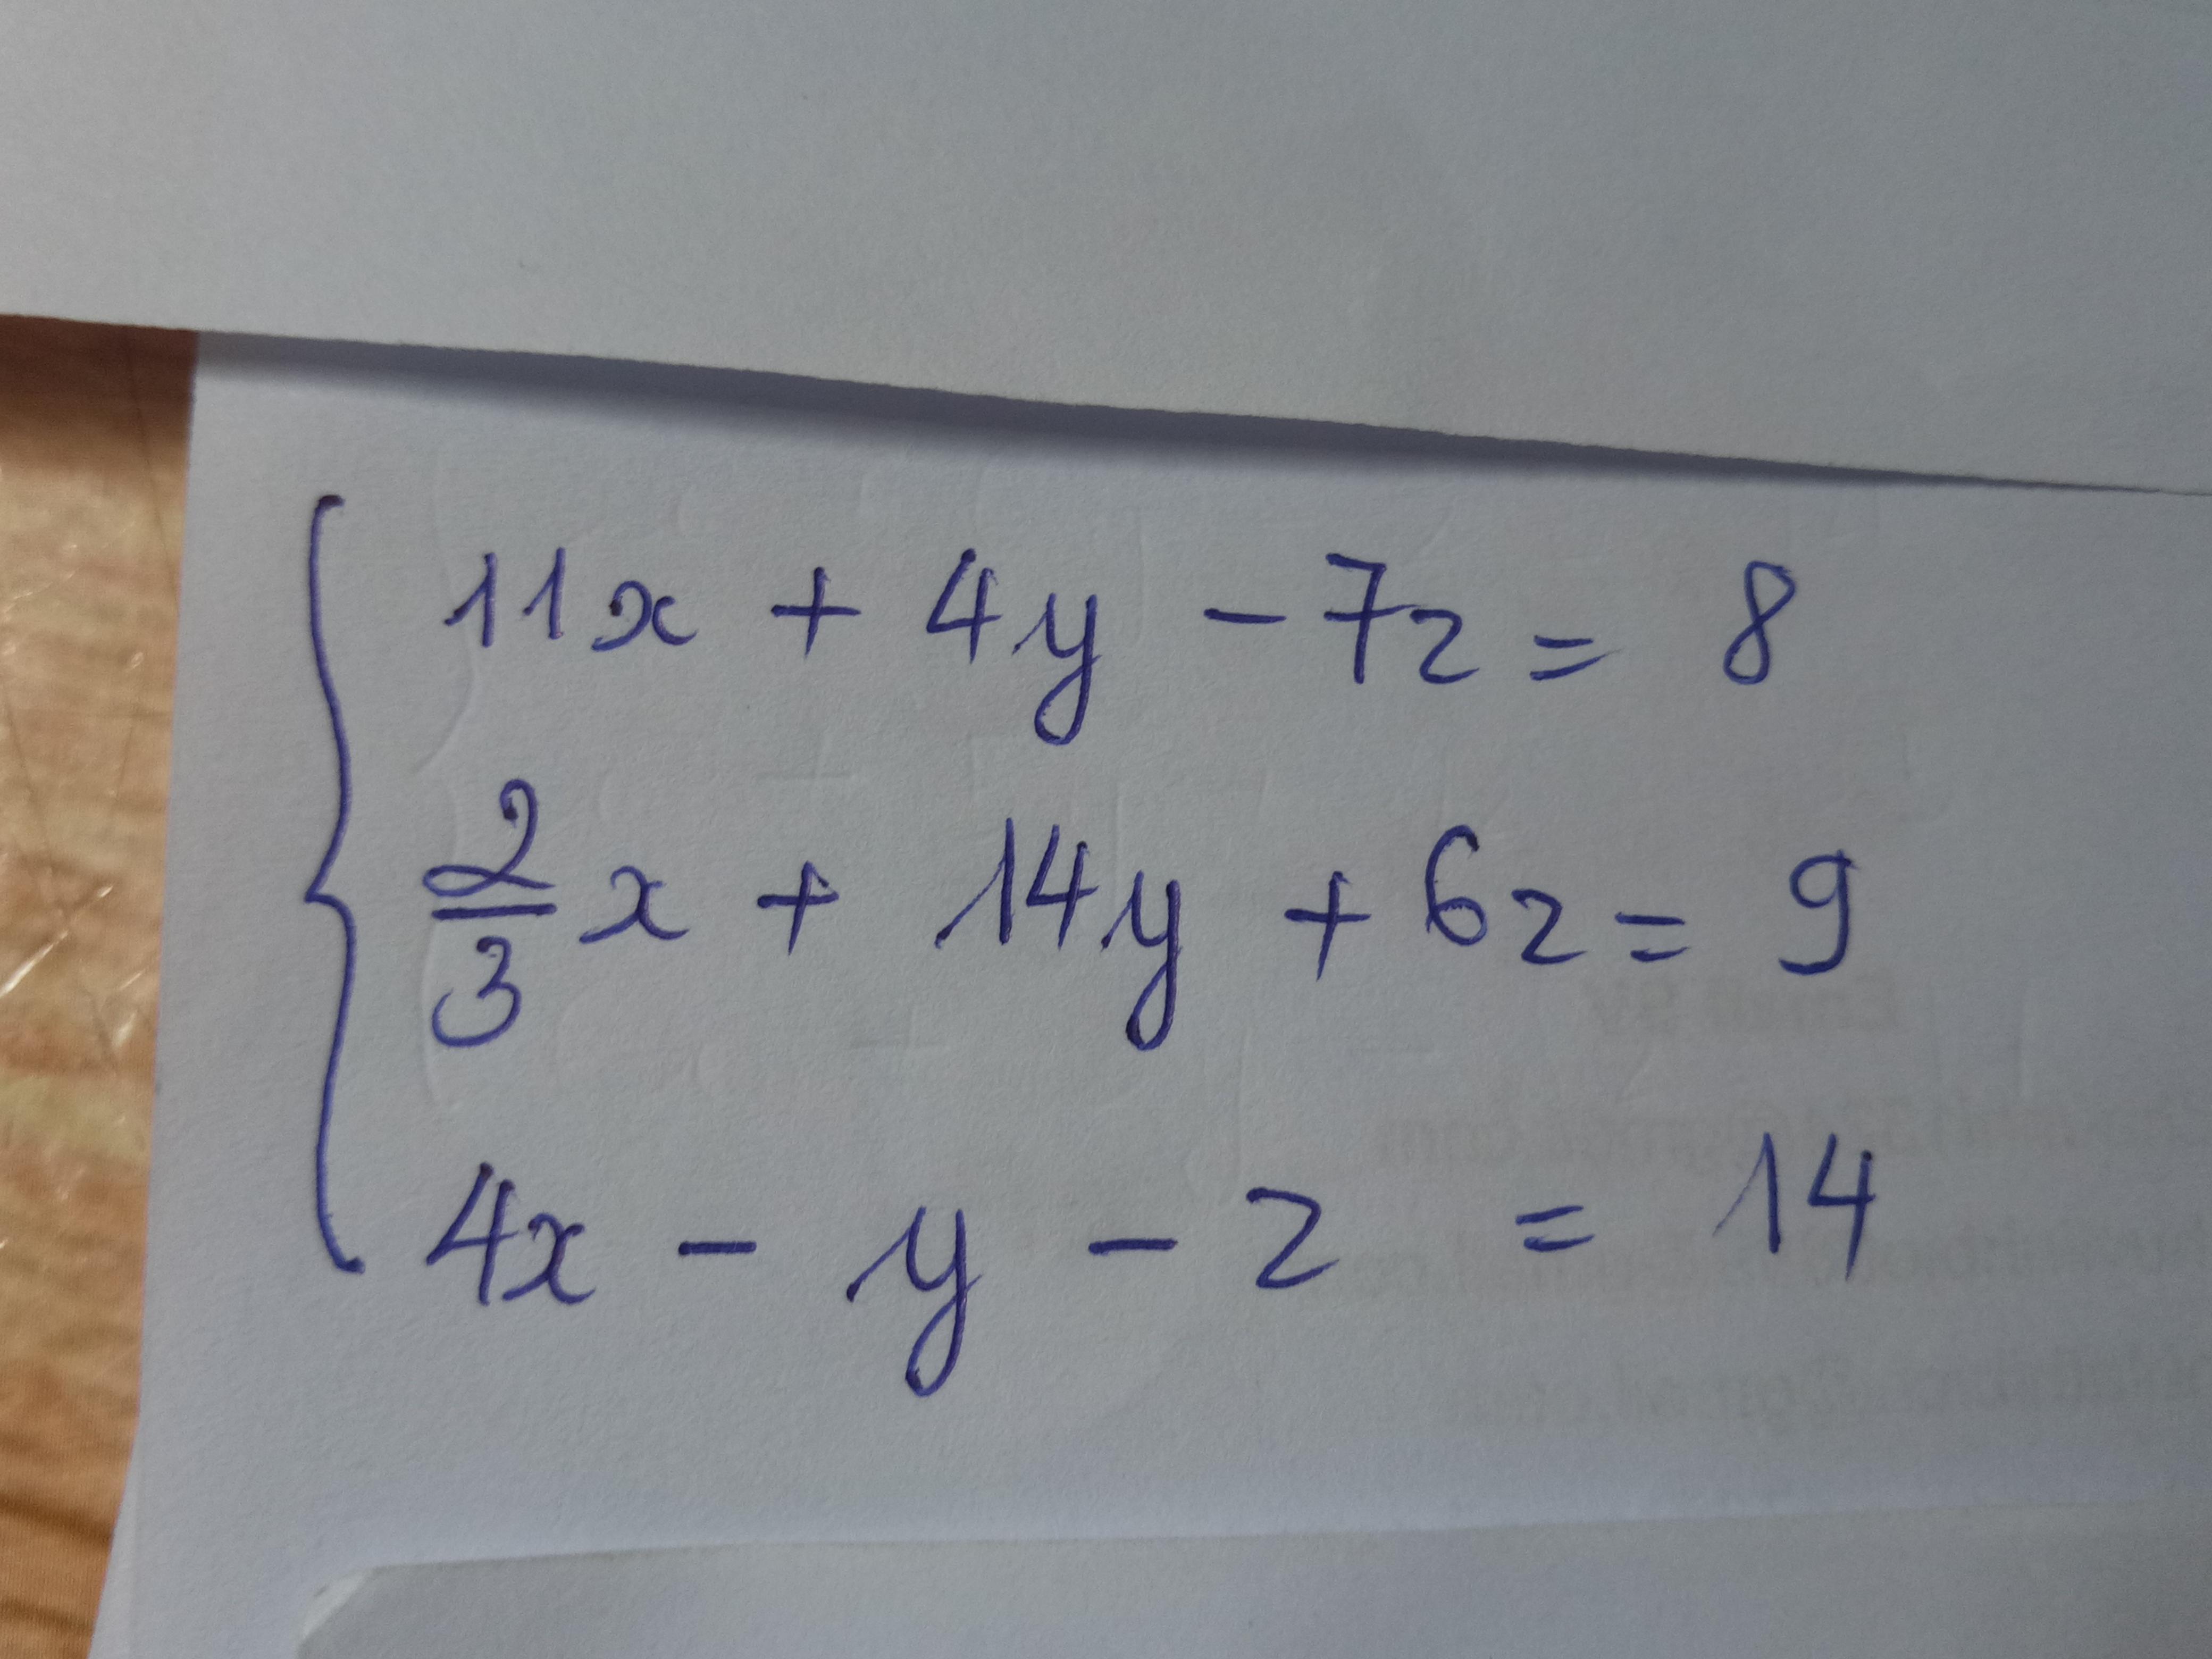 11x + 4y - 7z = 8
2/3 x + 14y + 6z = 9
4x - y - z = 14